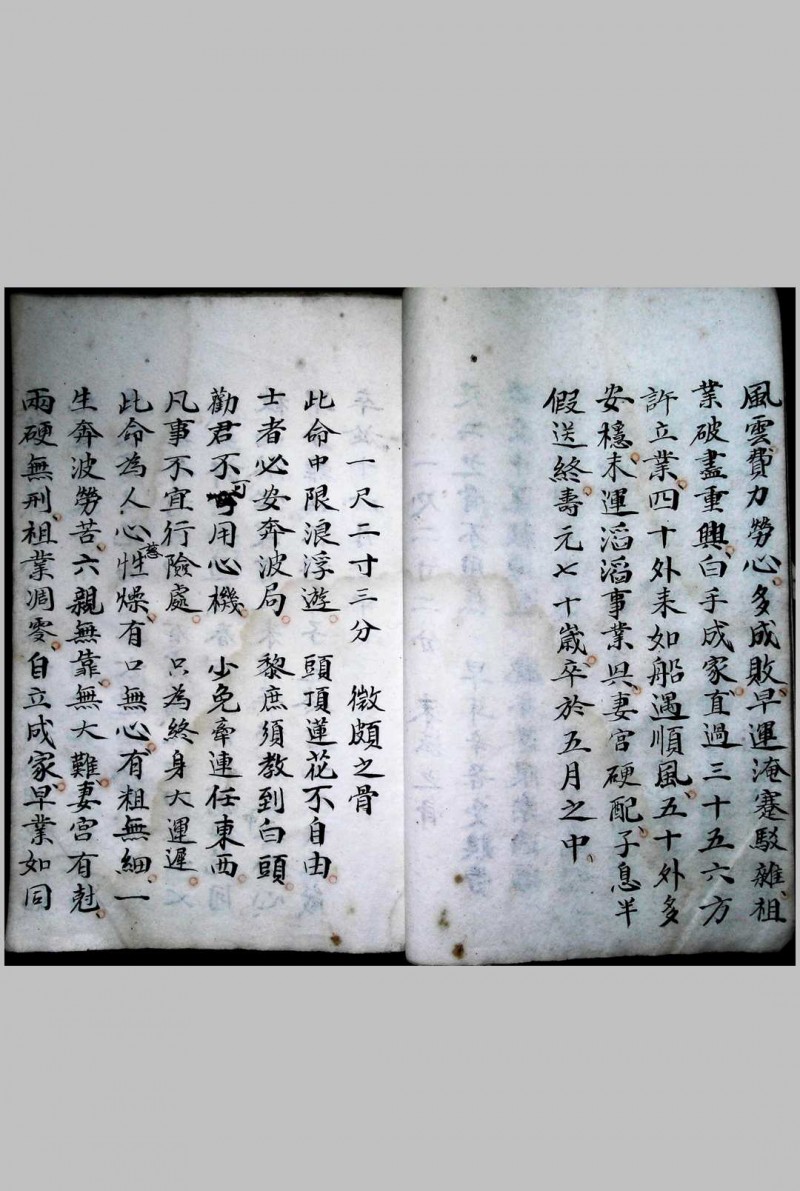 風雲費力勞心多成敗早運淹蹇駁雜祖
業破盡重興白手成家直過三十五六方
許立業四十外耒如船遇順風五十外多
安穩末運滔滔事業興妻宮硬配子息半
假送終壽元七十歲卒於五月之中
一尺二寸三分 微頗之骨
此命中限浪浮遊 頭頂蓮花不自由
士者必安奔波局 黎庶須教到白頭
勸君不可用心機 少免牽連任東西
凡事不宜行險處 只為終身大運遲
此命為人心慈性燥有口無心有粗無細一
生奔波勞苦六親無靠無大難妻宮有尅
兩硬無刑祖業凋零自立成家早業如同